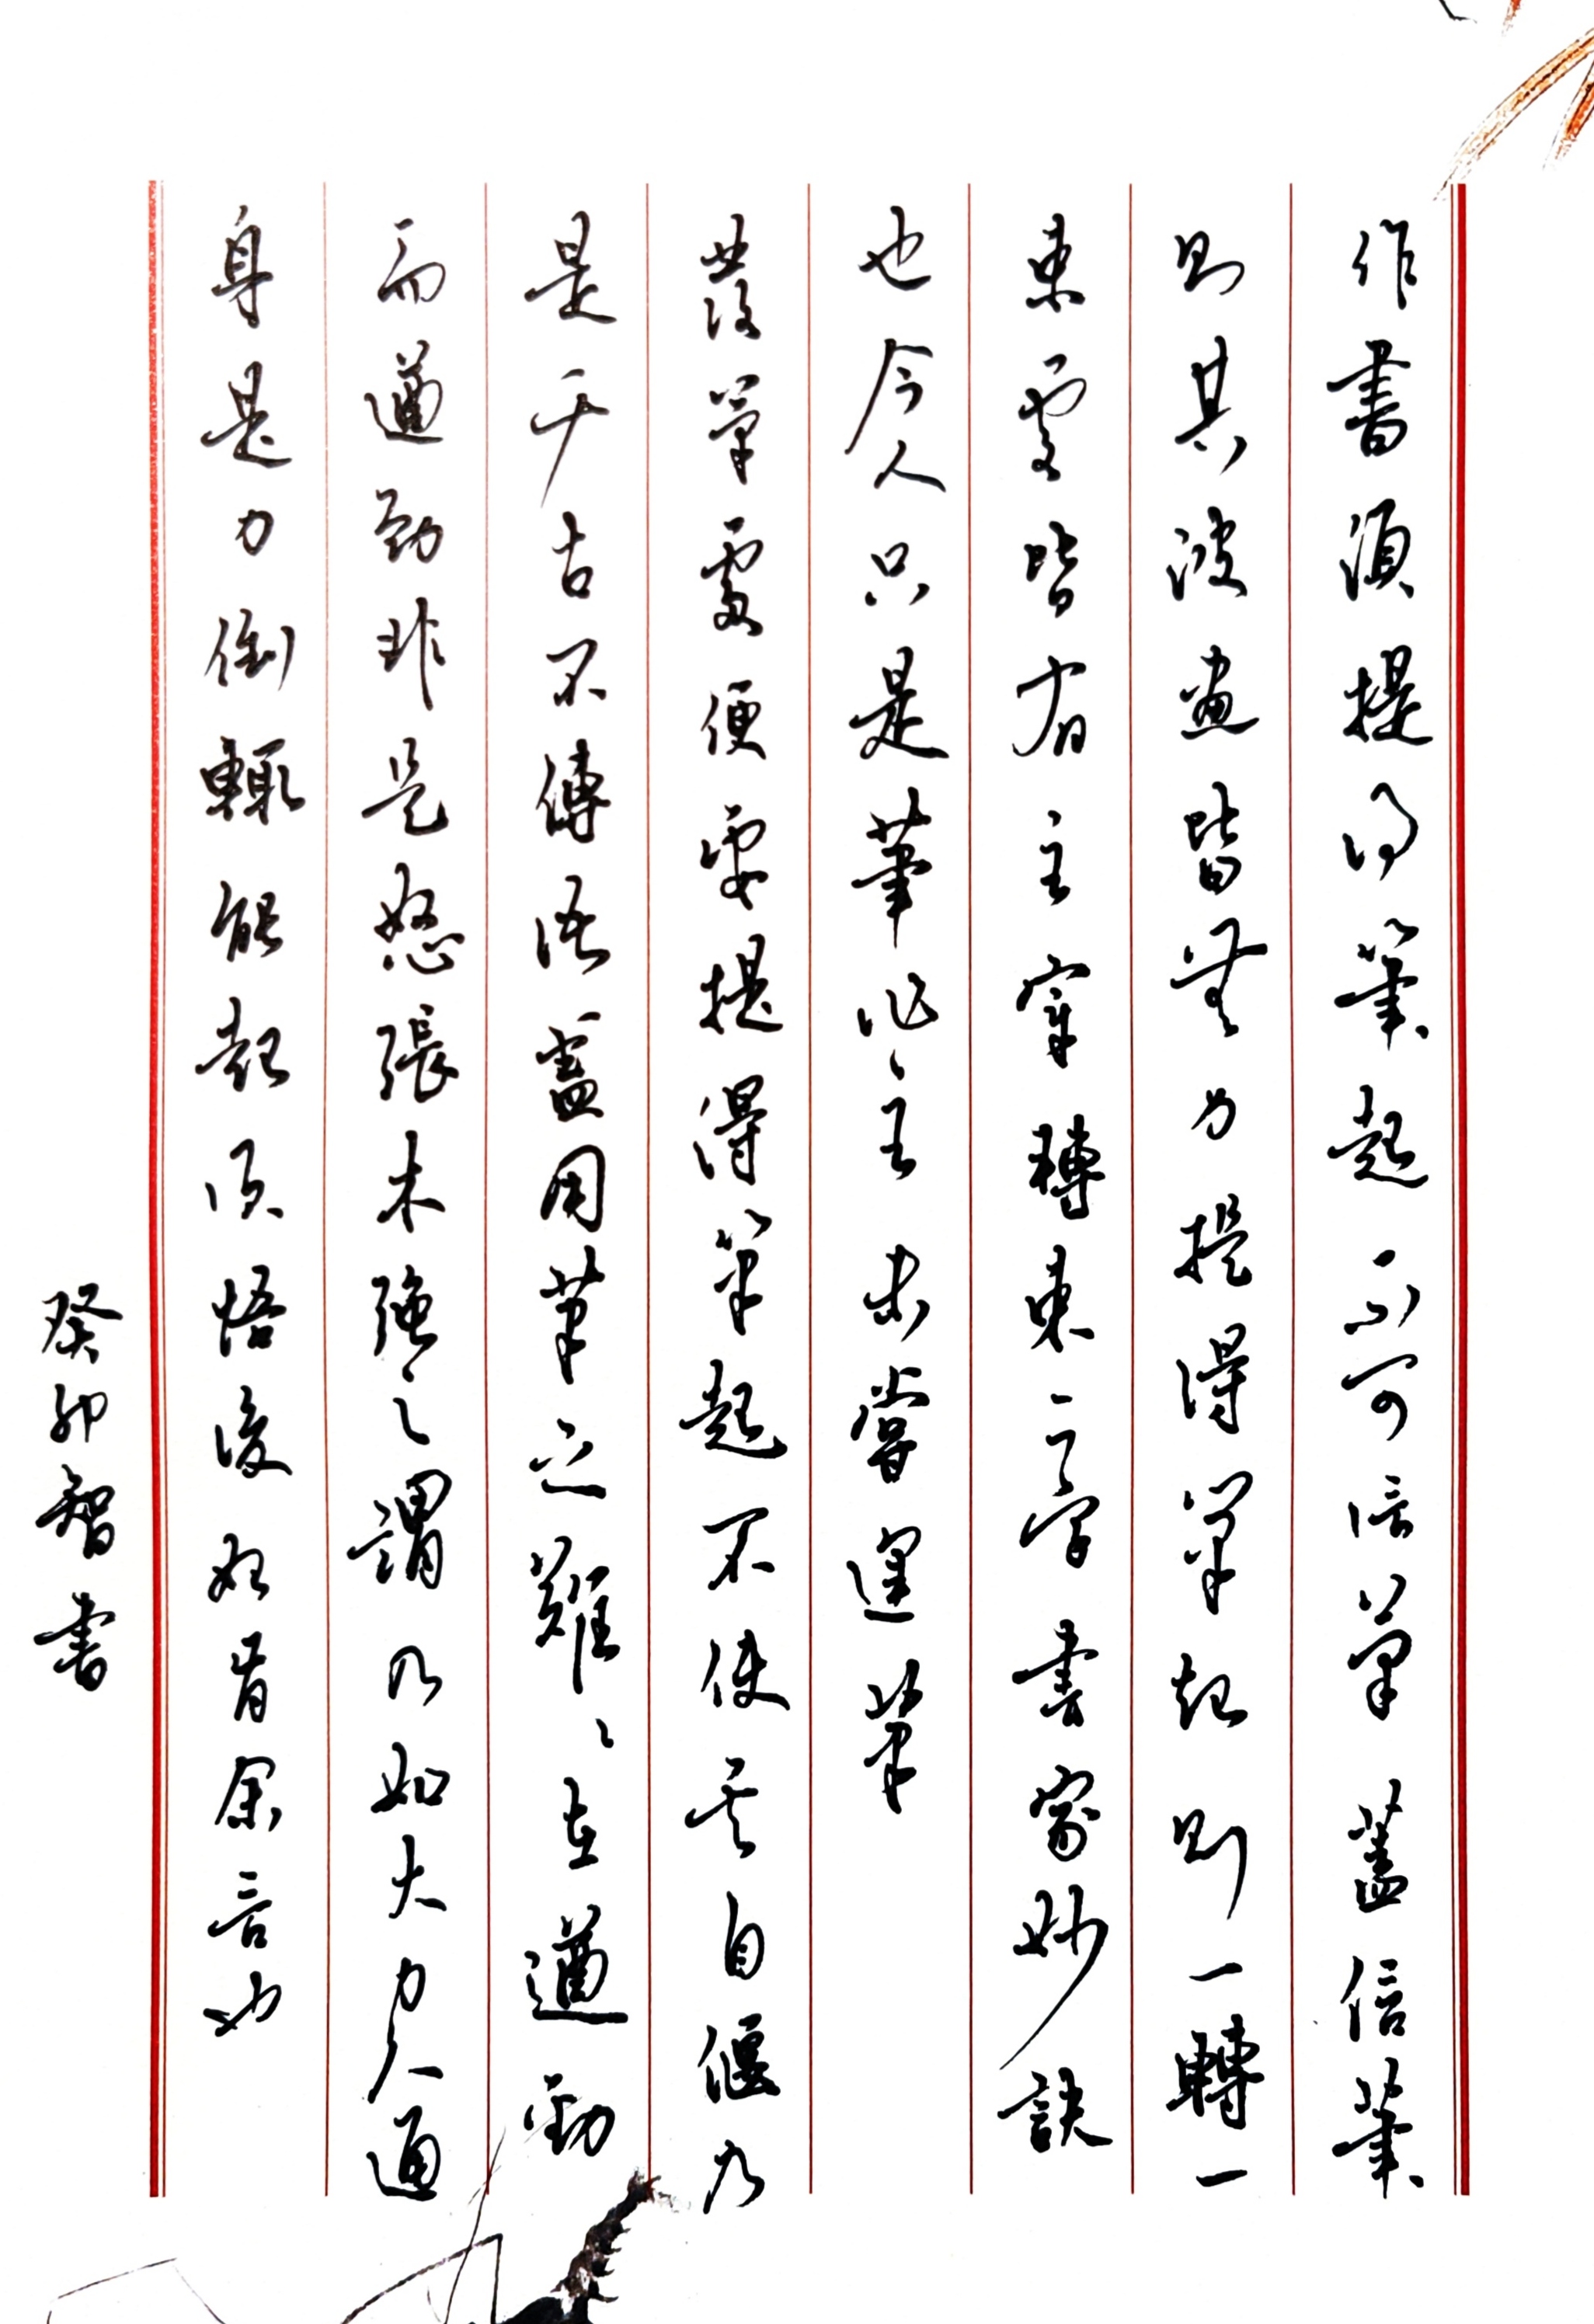 作書須提得筆起不可信筆蓋信筆
則其波畫皆無力提得筆起則一轉一
束處皆有主宰轉束二字書家妙訣
也今人只是筆作主未嘗運筆
發筆處便要提得筆起不使其自偃乃
是千古不傳語蓋用筆之難〻在遒勁
而遒勁非是怒張木強之謂乃如大力人通
身是力倒輒能起須悟後始肯余言也
癸卯智書